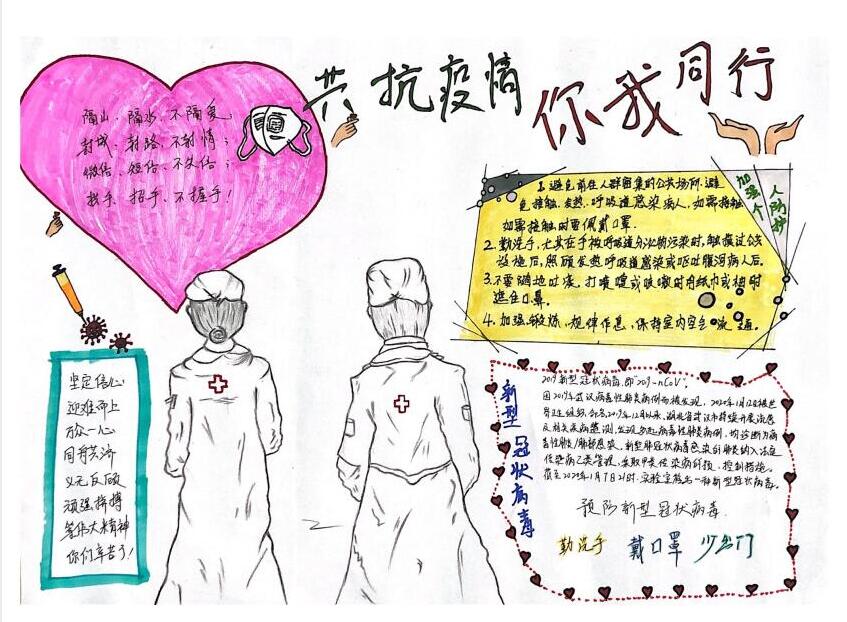 共抗疫情
你我同行
隔山、隔水、不隔爱;
封城、封路、不封情;
微信、短信、不失信;
挥手、招手、不握手!
加强个人防护
1.避免前往人群密集的公共场所.避
免接触,发热.呼吸道感染病人,如需接触
如需接触时要佩戴口罩.
2.勤洗手,尤其在手被呼吸道分泌物污染时,触摸过公共
设施后,照顾发热呼吸道感染或呕吐腹泻病人后。
3.不要随地吐痰,打喷嚏或咳嗽时用纸巾或袖肘
遮住口鼻。
4.加强锻炼,规律作息,保持室内空气流通。
坚定信心
迎难而上
万众一心
同舟共济
义无反顾
顽强拼搏
等伟大精神
你们辛苦了!
新型冠状病毒
2019新型冠状病毒,即"2019-nCoV",
因2019年武汉病毒性肺炎病例而被发现,2020年1月12日被世
界卫生组织命名.2019年12月以来,湖北省武汉市持续开展流感
及相关疾病监测,发现多起病毒性肺炎病例,均诊断为病
毒性肺炎/肺部感染.新型肺冠状病毒感染的肺炎纳入法定
传染病乙类管理,采取甲类传染病的预、控制措施。
截至2020年1月7日21时.实验室检出一种新型冠状病毒。
预防新型冠状病毒
勤洗手 戴口罩 少出门